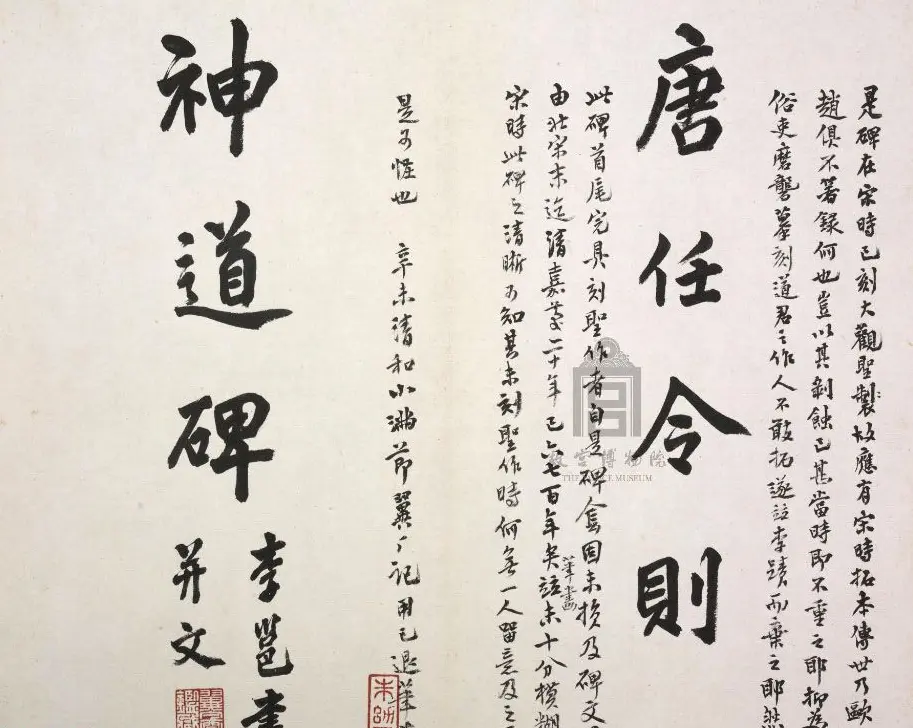 是碑在宋時已刻大觀聖製故應有宋時拓本傳世乃歐
趙俱不著錄何也豈以其剥蝕已甚當時即不重之耶抑為
俗吏磨礱摹刻道君之作人不敢拓遂竝李蹟而棄之耶
唐任令則
此碑首尾完具刻聖作者自是碑會因未損及碑文
由北宋末迄清嘉慶二十年已六七百年矣竝未十分模糊
筆畫
宋時此碑之清晰可知其未刻聖作時何無一人留意及之
是可怪也 辛未清和小滿節翼厂記用已退筆
神道碑
李邕書
并文
故宮博物院
THE PALACE MUSEUM